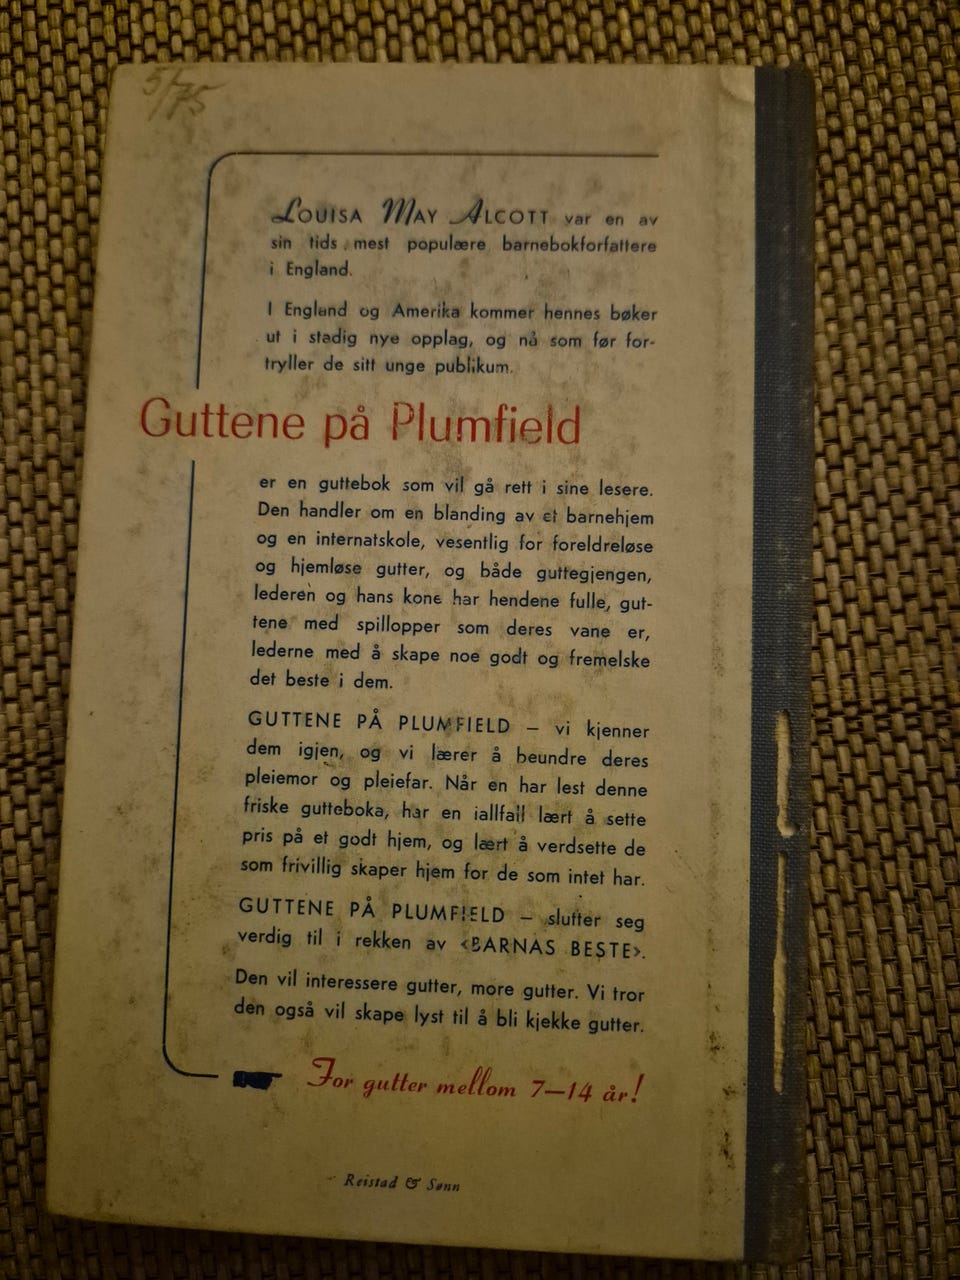 5/75
LOUISA MAY ALCOTT var en av
sin tids mest populære barnebokforfattere
i England.
I England og Amerika kommer hennes bøker
ut i stadig nye opplag, og nå som før for-
tryller de sitt unge publikum.
Guttene på Plumfield
er en guttebok som vil gå rett i sine lesere.
Den handler om en blanding av et barnehjem
og en internatskole, vesentlig for foreldreløse
og hjemløse gutter, og både guttegjengen,
lederen og hans kone har hendene fulle, gut-
tene med spillopper som deres vane er,
lederne med å skape noe godt og fremelske
det beste i dem.
GUTTENE PÅ PLUMFIELD — vi kjenner
dem igjen, og vi lærer å beundre deres
pleiemor og pleiefar. Når en har lest denne
friske gutteboka, har en iallfall lært å sette
pris på et godt hjem, og lært å verdsette de
som frivillig skaper hjem for de som intet har.
GUTTENE PÅ PLUMFIELD — slutter seg
verdig til i rekken av «BARNAS BESTE».
Den vil interessere gutter, more gutter. Vi tror
den også vil skape lyst til å bli kjekke gutter.
For gutter mellom 7—14 år!
Reistad & Sønn